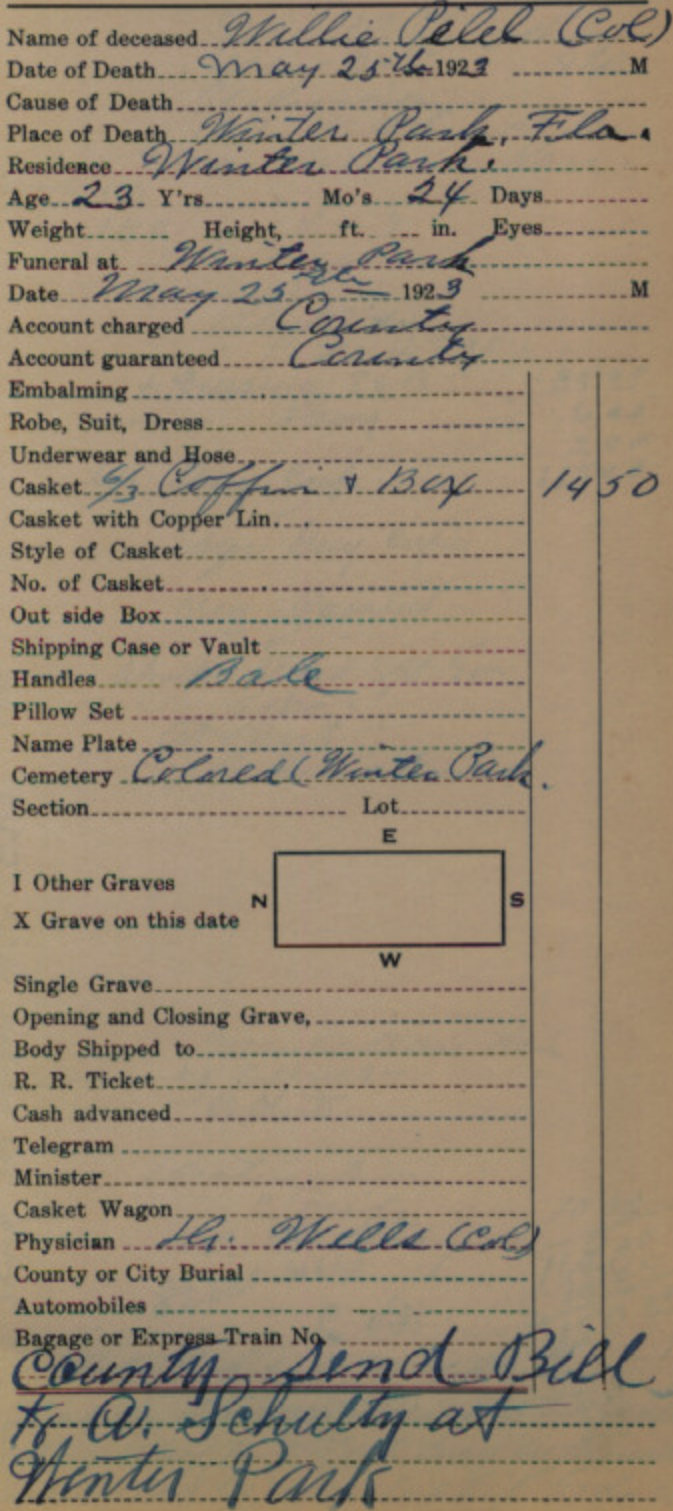 Name of deceased Willie Pelel (Col)
Date of Death May 25th 1923 M
Cause of Death
Place of Death Winter Park, Fla.
Residence Winter Park.
Age 23 Y'rs Mo's 24 Days
Weight Height, ft. in. Eyes
Funeral at Winter Park
Date May 25th 1923 M
Account charged County
Account guaranteed County
Embalming
Robe, Suit, Dress
Underwear and Hose
Casket 6/3 Coffin & Box 14 50
Casket with Copper Lin.
Style of Casket
No. of Casket
Out side Box
Shipping Case or Vault
Handles Bale
Pillow Set
Name Plate
Cemetery Colored (Winter Park.
Section Lot
E
I Other Graves
N S
X Grave on this date
W
Single Grave
Opening and Closing Grave,
Body Shipped to
R. R. Ticket
Cash advanced
Telegram
Minister
Casket Wagon
Physician Dr. Wells (Col)
County or City Burial
Automobiles
Bagage or Express Train No.
County send Bill
A. Schulty at
Winter Park